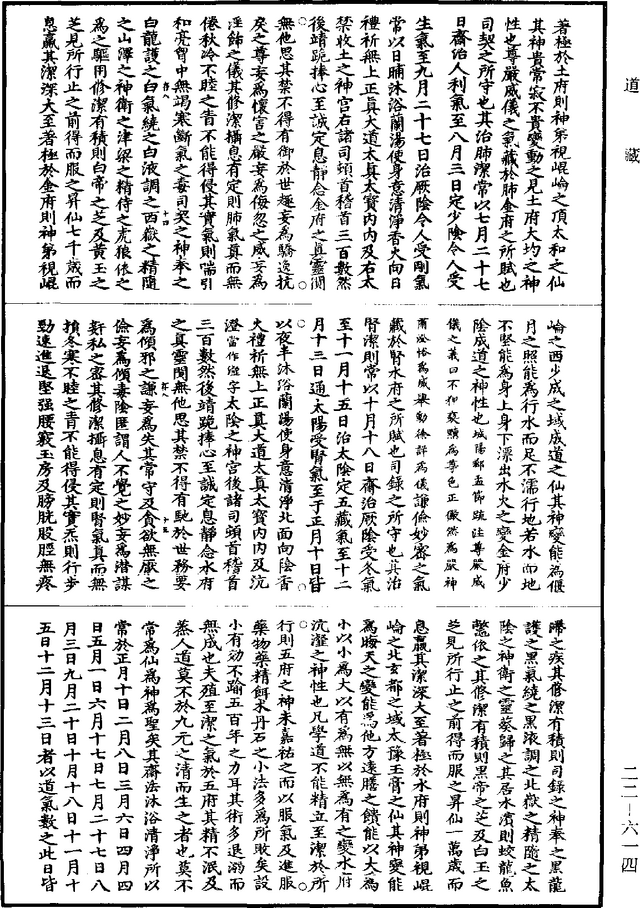 道藏
二二—六一四
著極於土府則神弟視崐崘之頂太和之仙
其神貴常寂不貴變動之見土府大均之神
性也尊嚴威儀之氣藏於肺金府之所賦也
司契之所守也其治肺潔常以七月二十七
日齋治人利氣至八月三日定少陰令人受
生氣至九月二十七日治厥陰令人受剛氣
常以日晡沐浴蘭湯使身意清淨香火向日
種祈無上正真大道太真太寶內內及右太
禁收土之神宮右諸司頭首稽首三百數然
後靖跪捧心至誠定息静念金府之真靈閴
無他思其禁不得有御於世趣妄為驕逸抗
戾之尊妄為懷害之嚴妄為侮忽之威妄為
淫飾之儀其修潔攝息有定則肺氣真而無
倦秋冷不睦之眚不能得侵其實氣則喘引
和亮胷中無竭寒斷氣之毒司契之神奉之
白龍護之白氣繞之白液調之西嶽之精隨
之山澤之神衛之津梁之精侍之虎狼依之
為之驅用修潔有積則白帝之芝及黃玉之
芝見所行止之前得而服之昇仙七千歲而
息羸其潔深大至著極於金府則神弟視崐
崘之西少成之域成道之仙其神變能為偃
月之照能為行水而足不濡行地若水而地
不堅能為身上身下漂出水火之變金府少
陰成道之神性也城陽郄孟節疏注尊嚴威
儀之義曰不狎褻黷為尊色正儼然為嚴神
肅㳂恪為威舉動徐詳為儀謙儉妙密之氣
藏於腎水府之所賦也司錄之所守也其治
腎潔則常以十月十八日齋治厥陰受冬氣
至十一月十五日治太陰定五藏氣至十二
月十三日通太陽受腎氣至于正月十日皆
以夜半沐浴蘭湯使身意清淨北面向陰香
火種祈無上正真大道太真太寶內內及沆
澄當作瀣字太陰之神宮後諸司頭首稽首
三百數然後靖跪捧心至誠定息静念水府
之真靈閴無他思其禁不得有馳於世務要
為傾邪之謙妄為失其常守及貪欲無厭之
儉妄為傾毒陰匿謂人不覺之妙妄為潛謀
姦私之密其修潔攝息有定則腎氣真而無
損冬寒不睦之眚不能得侵其實炁則行步
勁速進退堅强腰竅玉房及膀胱股脛無疼
𤸷之疾其修潔有積則司錄之神奉之黑龍
護之黑氣繞之黑液調之北嶽之精隨之太
陰之神衛之靈葵歸之其居水濱則蛟龍魚
鱉依之其修潔有積則黑帝之芝及白玉之
芝見所行止之前得而服之昇仙一萬歲而
息羸其潔深大至著極於水府則神弟視崐
崘之北玄都之域太豫玉膏之仙其神變能
為晦天之變能為他方遠膳之饋能以大為
小以小為大以有為無以無為有之變水府
沆瀣之神性也凡學道不能精立至潔於所
行則五府之神未嘉祐之而以服氣及進服
藥物藥精餌水丹石之小法多為所敗矣設
小有効不踰五百年之力耳其術多退溺而
無成也夫殖至潔之氣於五府其精不泯及
蒸人道莫不於九元之清而生之者也莫不
常為仙為神為聖矣其齋法沐浴清淨所以
常於正月十日二月八日三月六日四月四
日五月一日六月十七日七月二十七日八
月三日九月二十日十月十八日十一月十
五日十二月十三日者以道氣數之此日皆